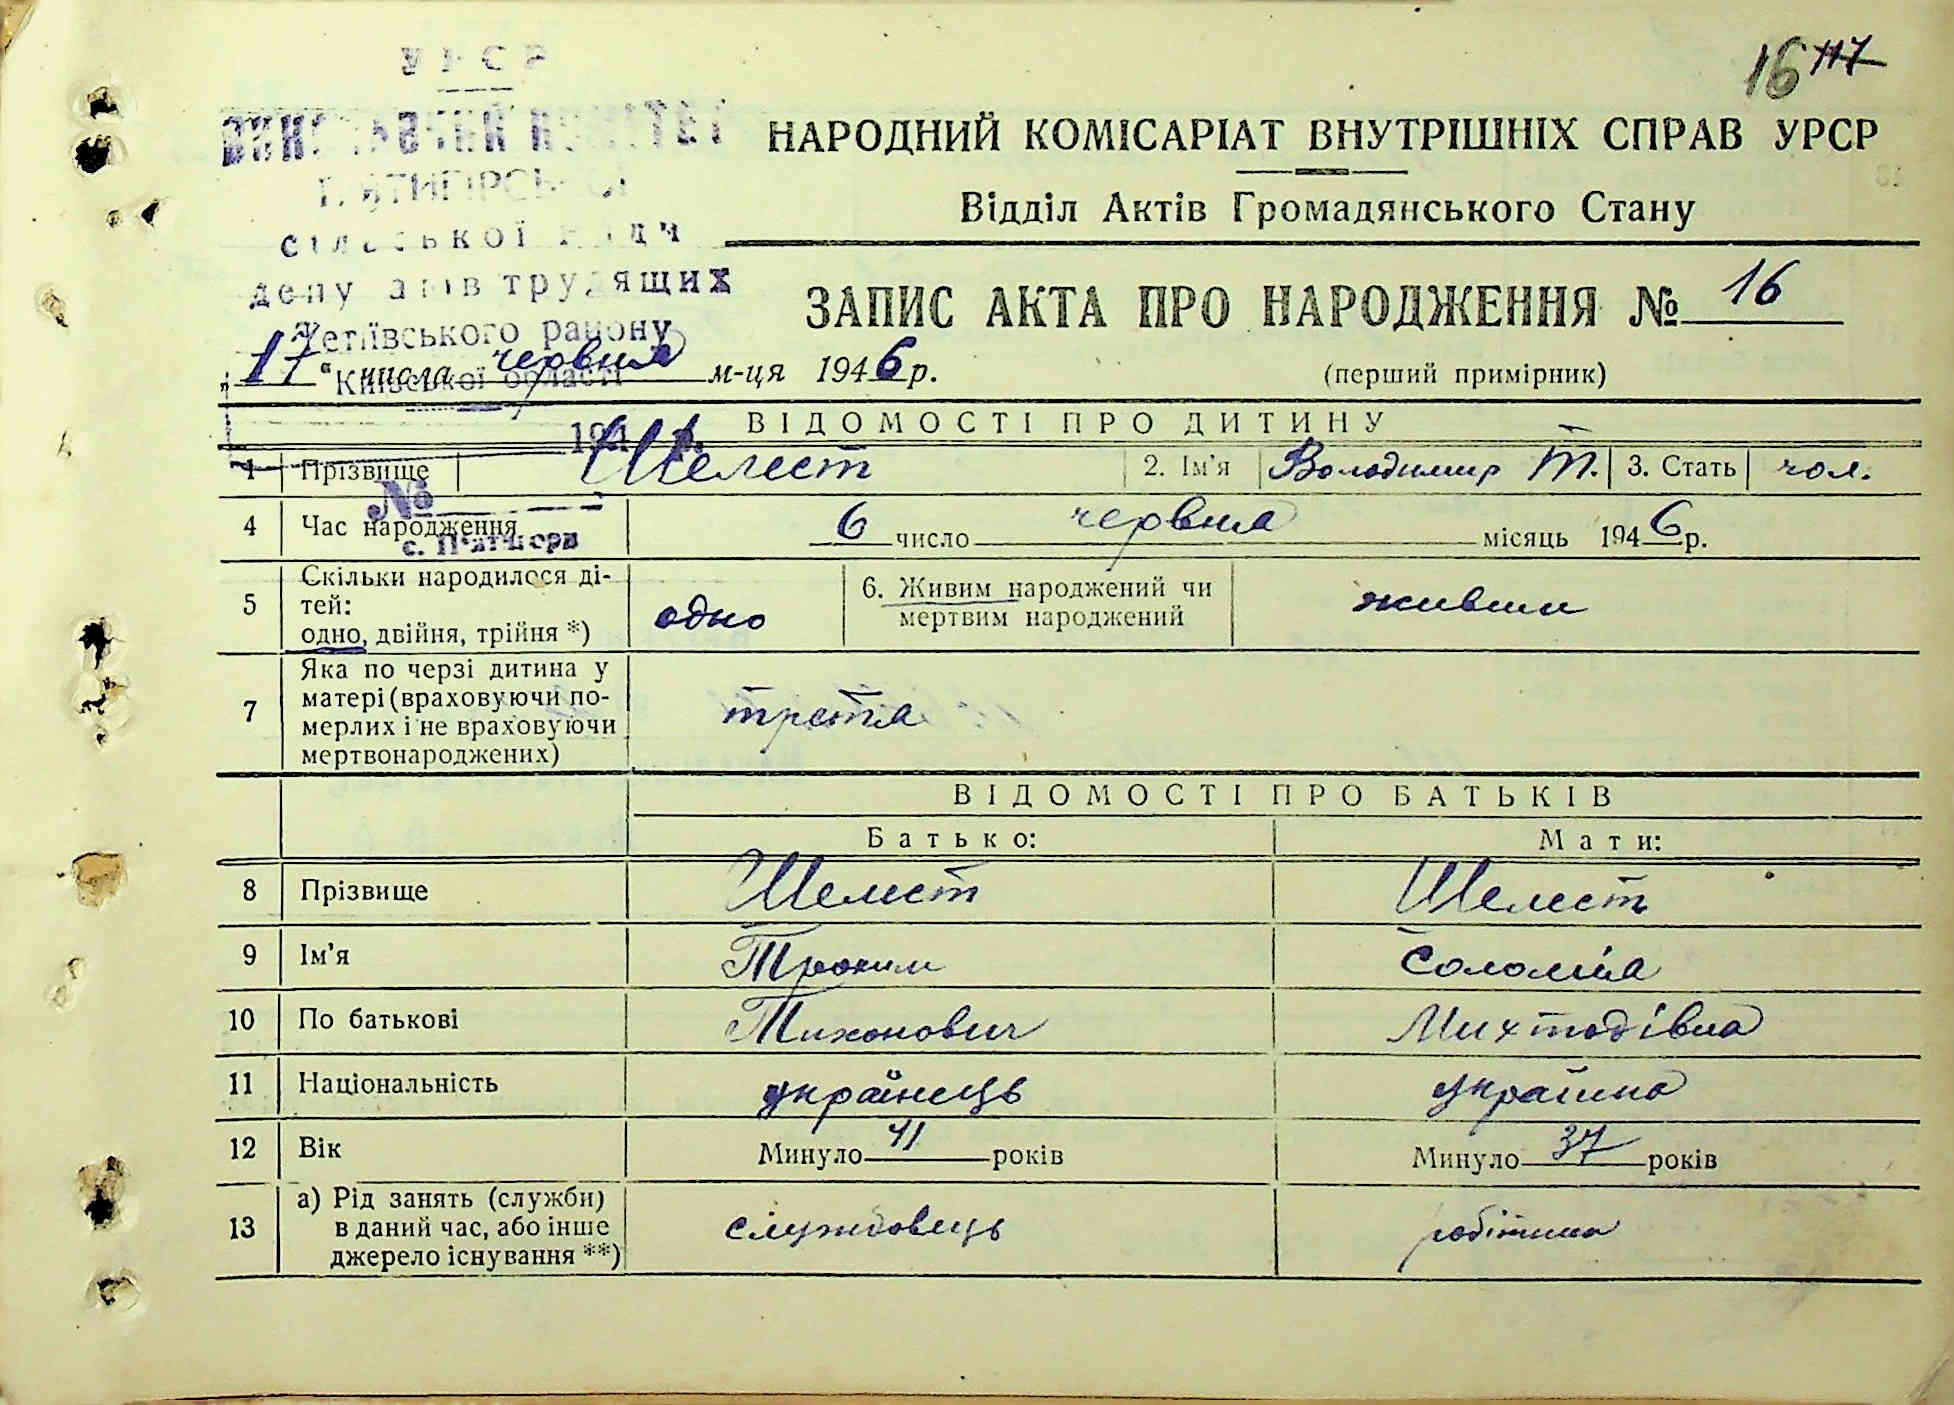 16 117
УРСР
ВИКОНАВЧИЙ КОМІТЕТ
П'ЯТИГІРСЬКОЇ
сільської Ради
депутатів трудящих
Тетіївського району
Київської області
194 р.
№
с. П'ятигори
НАРОДНИЙ КОМІСАРІАТ ВНУТРІШНІХ СПРАВ УРСР
Відділ Актів Громадянського Стану
ЗАПИС АКТА ПРО НАРОДЖЕННЯ № 16
„17“ числа червня м-ця 1946 р.
(перший примірник)
ВІДОМОСТІ ПРО ДИТИНУ
1 Прізвище Шелест 2. Ім'я Володимир Т. 3. Стать чол.
4 Час народження 6 число червня місяць 1946 р.
5 Скільки народилося ді-
тей:
одно, двійня, трійня *) одно
6. Живим народжений чи
мертвим народжений живим
7 Яка по черзі дитина у
матері (враховуючи по-
мерлих і не враховуючи
мертвонароджених) третя
ВІДОМОСТІ ПРО БАТЬКІВ
Батько: Мати:
8 Прізвище Шелест Шелест
9 Ім'я Трохим Соломія
10 По батькові Тихонович Михтодівна
11 Національність українець українка
12 Вік Минуло 41 років Минуло 37 років
13 а) Рід занять (служби)
в даний час, або інше
джерело існування **) службовець робітниця